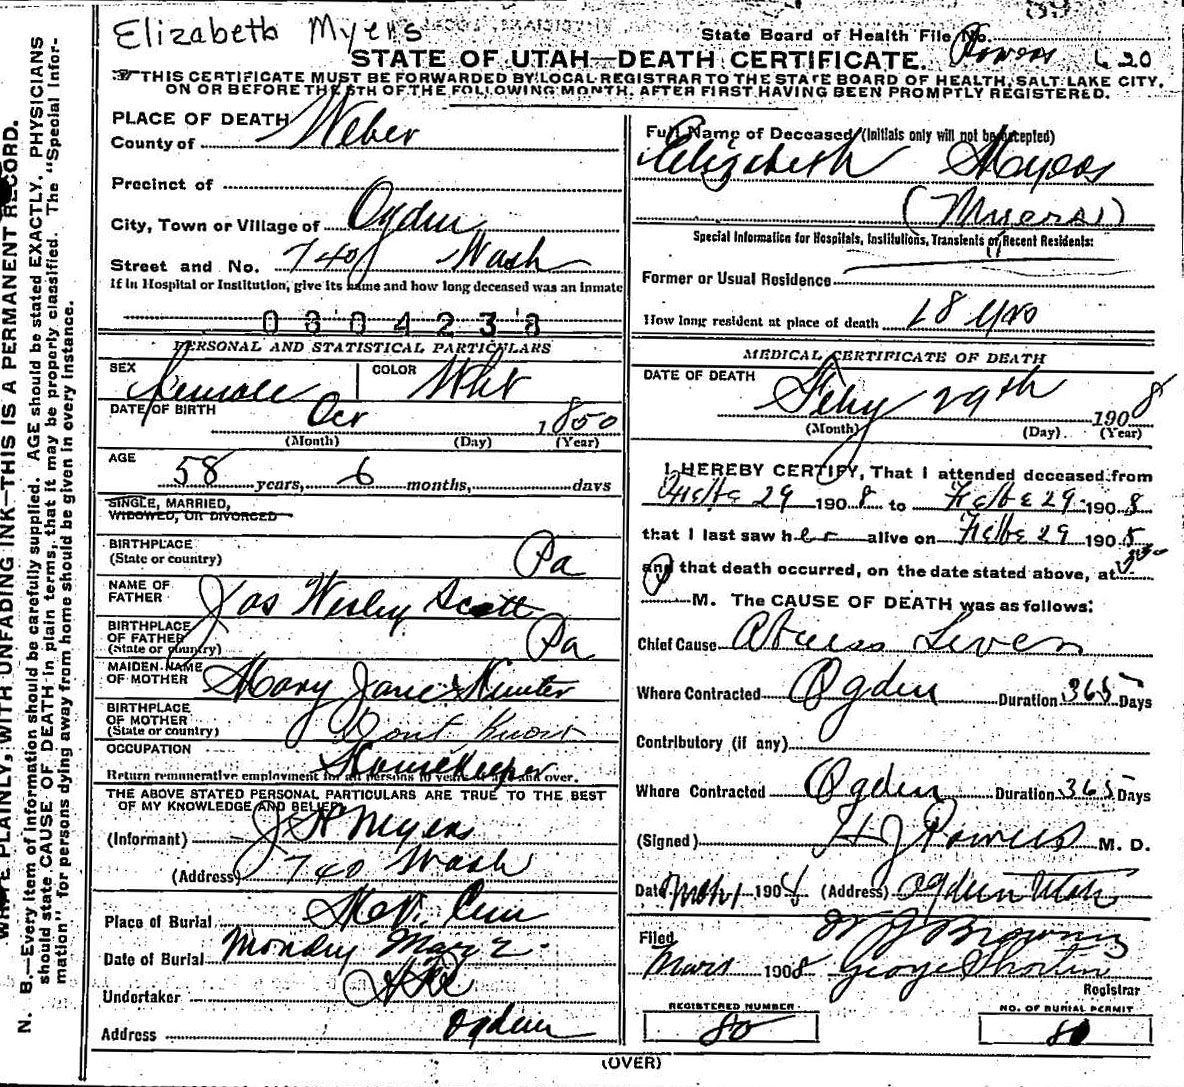 Elizabeth Myers
State Board of Health File No. Powers 620
STATE OF UTAH—DEATH CERTIFICATE.
THIS CERTIFICATE MUST BE FORWARDED BY LOCAL REGISTRAR TO THE STATE BOARD OF HEALTH, SALT LAKE CITY,
ON OR BEFORE THE 5TH OF THE FOLLOWING MONTH, AFTER FIRST HAVING BEEN PROMPTLY REGISTERED.
PLACE OF DEATH
County of Weber
Precinct of
City, Town or Village of Ogden
Street and No. 740 Wash
If in Hospital or Institution, give its name and how long deceased was an inmate
0804238
PERSONAL AND STATISTICAL PARTICULARS
SEX Female COLOR Whit
DATE OF BIRTH Oct 1850
(Month) (Day) (Year)
AGE
58 years, 6 months, days
SINGLE, MARRIED,
WIDOWED, OR DIVORCED
BIRTHPLACE
(State or country) Pa
NAME OF
FATHER Jas Wesley Scott
BIRTHPLACE
OF FATHER
(State or country) Pa
MAIDEN NAME
OF MOTHER Mary Jane Hunter
BIRTHPLACE
OF MOTHER
(State or country) Dont Know
OCCUPATION Housekeeper
Return remunerative employment for all persons 10 years of age and over.
THE ABOVE STATED PERSONAL PARTICULARS ARE TRUE TO THE BEST
OF MY KNOWLEDGE AND BELIEF
(Informant) J H Myers
(Address) 740 Wash
Place of Burial Cem
Date of Burial Monday Mar 2
Undertaker
Address Ogden
Full Name of Deceased (Initials only will not be accepted)
Elizabeth Mayers
(Myers)
Special Information for Hospitals, Institutions, Transients or Recent Residents:
Former or Usual Residence
How long resident at place of death 18 yrs
MEDICAL CERTIFICATE OF DEATH
DATE OF DEATH
Feby 29th 1908
(Month) (Day) (Year)
I HEREBY CERTIFY, That I attended deceased from
29 1908 to 29 1908
that I last saw her alive on 29 1908
and that death occurred, on the date stated above, at
P M. The CAUSE OF DEATH was as follows:
Chief Cause Abcess Liver
Where Contracted Ogden Duration 365 Days
Contributory (if any)
Where Contracted Ogden Duration 365 Days
(Signed) H J Powers M. D.
Date Mch 1 1908 (Address) Ogden Utah
Filed
Mars 1908 George Shorten
Registrar
REGISTERED NUMBER
80
NO. OF BURIAL PERMIT
80
(OVER)
WRITE PLAINLY, WITH UNFADING INK—THIS IS A PERMANENT RECORD.
N. B.—Every item of information should be carefully supplied. AGE should be stated EXACTLY. PHYSICIANS
should state CAUSE OF DEATH in plain terms, that it may be properly classified. The "Special Infor-
mation" for persons dying away from home should be given in every instance.